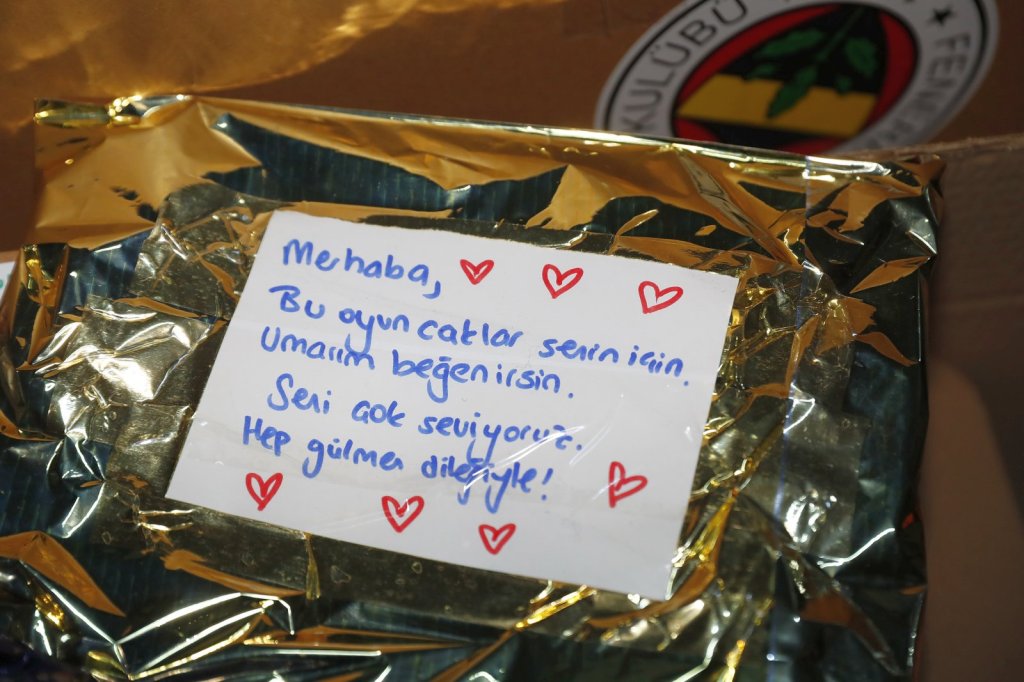 KULÜBÜ ★ FENER
Merhaba,
Bu oyuncaklar senin için.
Umarım beğenirsin.
Seni çok seviyoruz.
Hep gülmen dileğiyle!